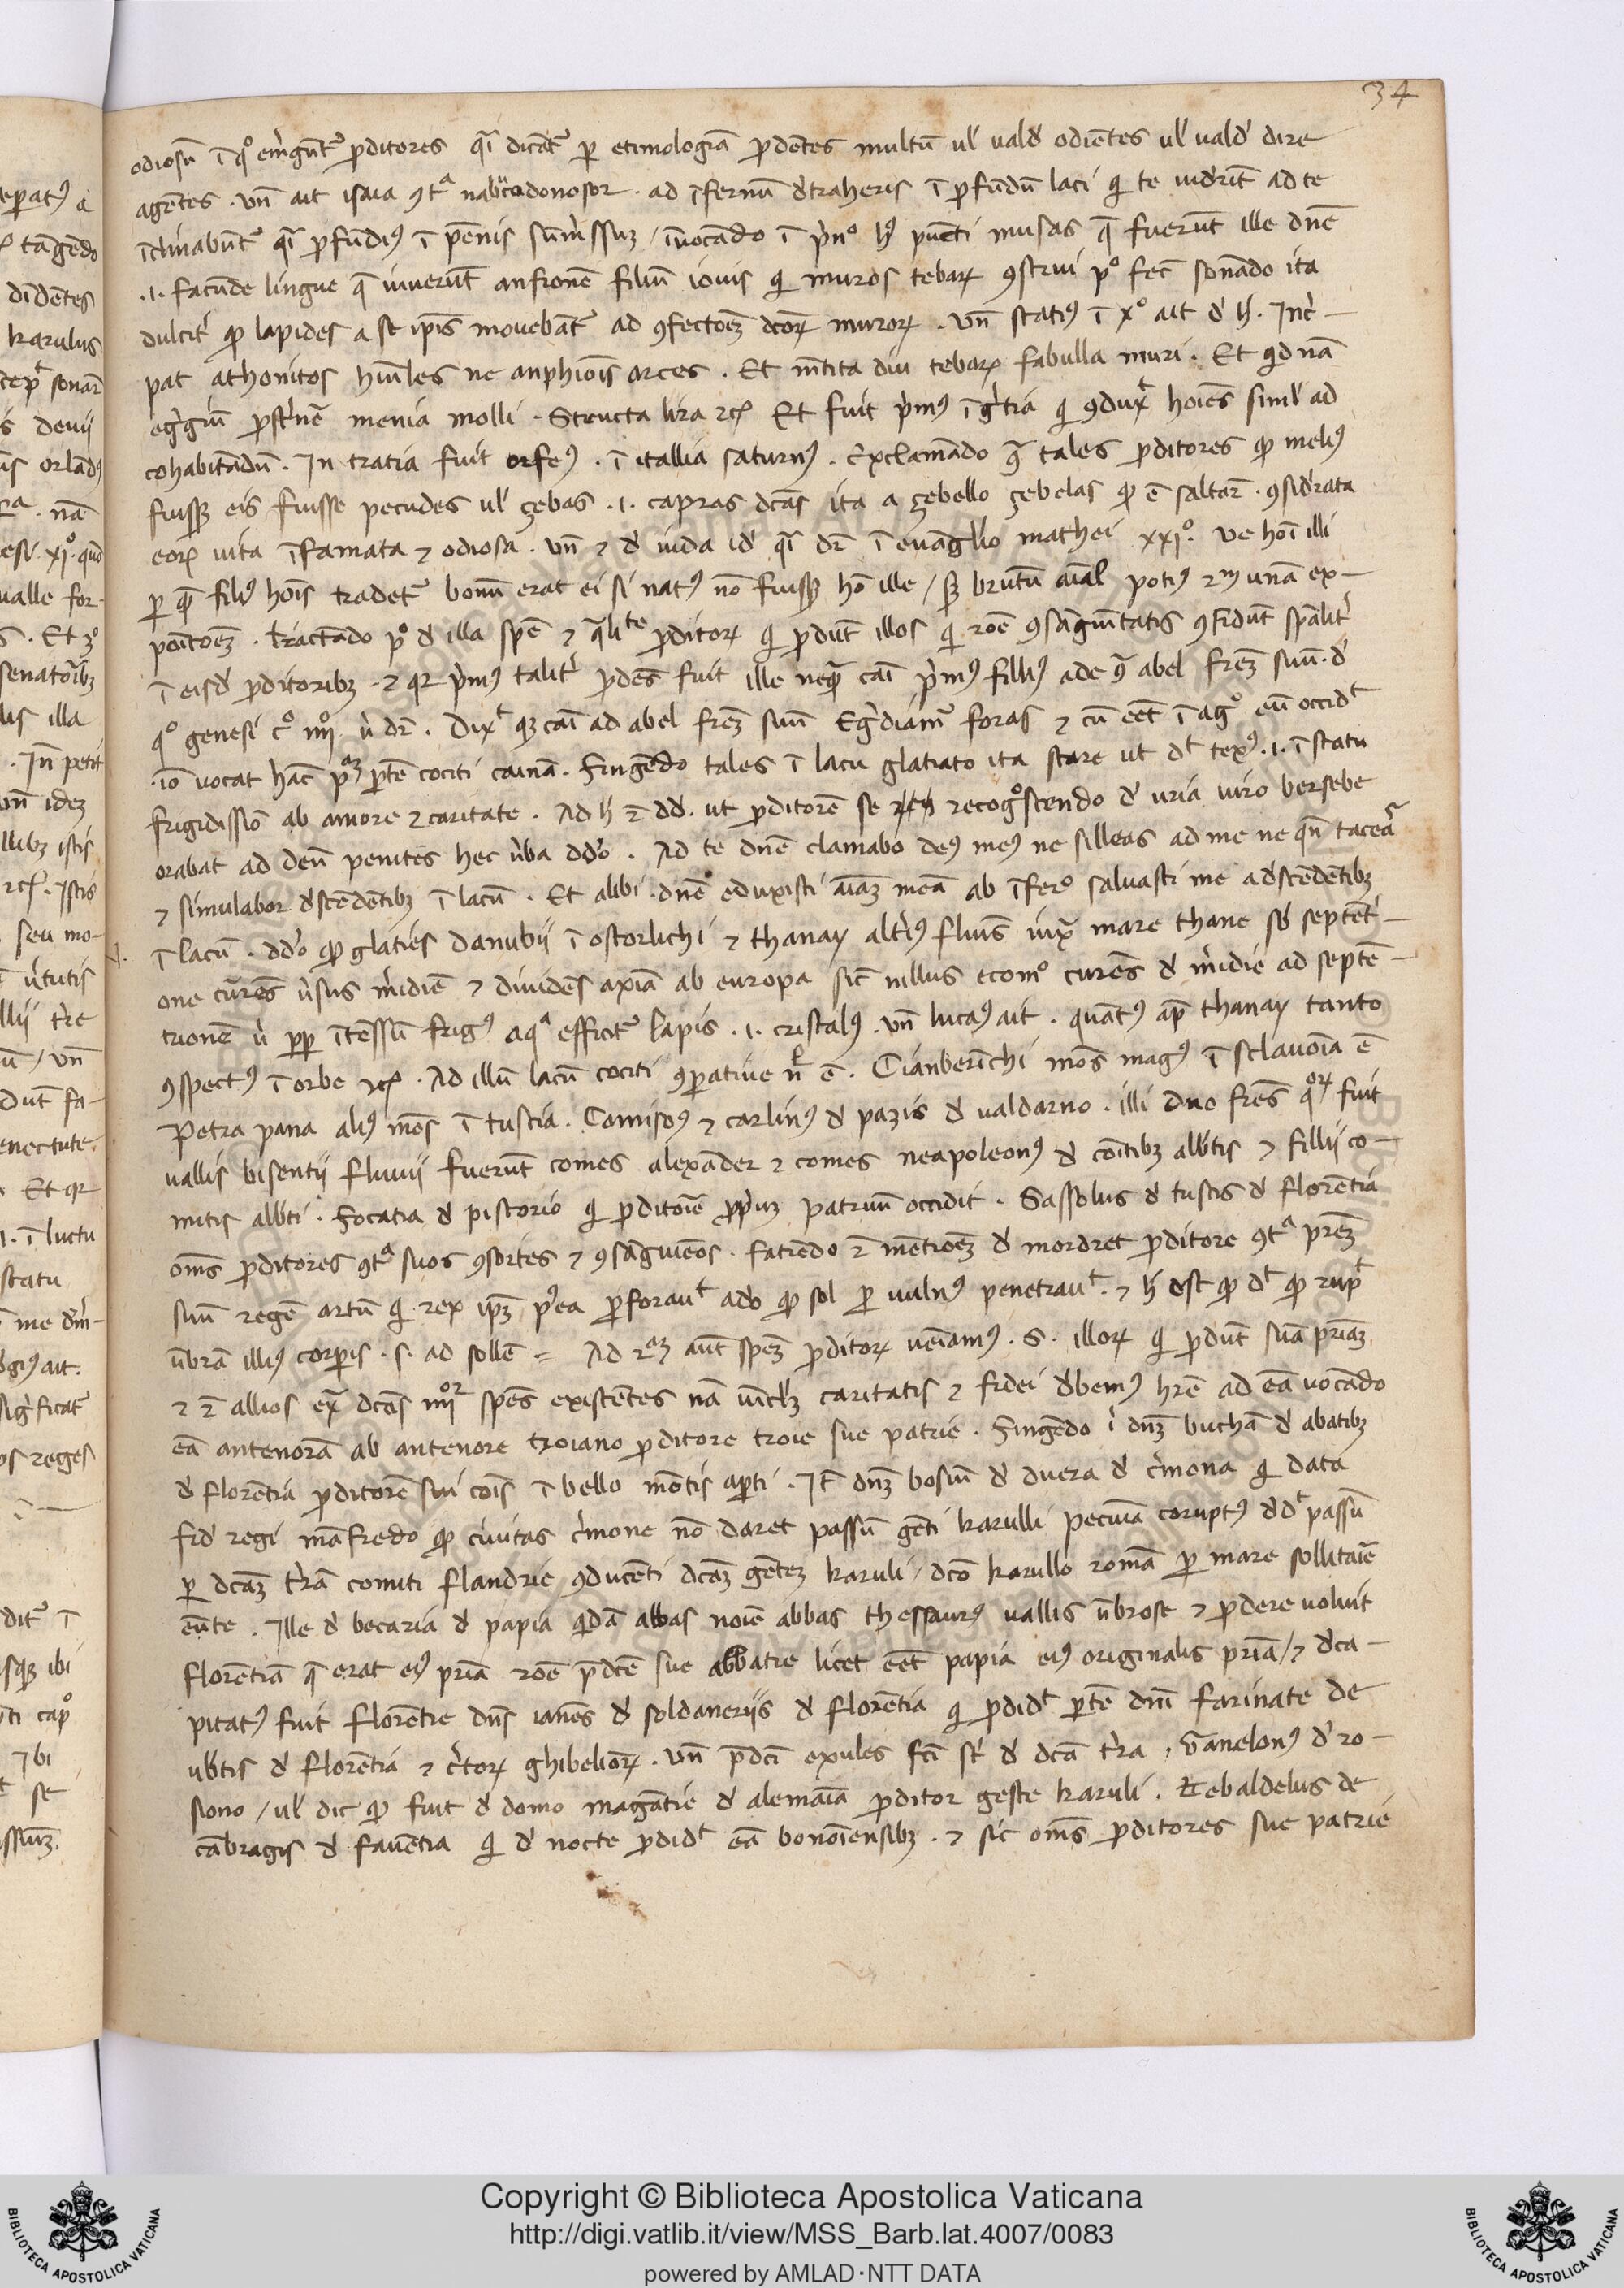 34
odiosũ ĩ qͦ emg̃unt᷑ ꝓditores qͣi dicãt᷑ ꝑ etimologiã ꝓdẽtes multũ ul' uald' odiẽtes ul' uald' dire
agẽtes . vñ ait isaia ꝯtͣ nabucodonosor . ad ĩfernũ d'traheris ĩ ꝓfũdũ laci qi te uid'rĩt ad te
ĩclinabũt᷑ qͣi ꝓfũdiꝰ ĩ pẽnis sum̃ssuꝫ / ĩuocãdo ĩ pͥnͦ hꝰ pũcti musas q̃ fuerũt ille dñe
.i. facũde lingue q̃ iuuerũt anfionẽ filiũ iouis qi muros tebaꝝ ꝯstrui pͦ fecͭ sonãdo ita
dulcit' ꝙ lapides a se ip̃is mouebãt᷑ ad ꝯfectõeꝫ dc̃oꝝ muroꝝ . vñ statiꝰ ĩ xͦ ait d' h' . Incͥ-
pat athonitos hũiles ne anphiõis arces . Et m̃tita diu tebaꝝ fabulla muri . Et qid nã
egͥgiũ ꝓst'nẽ menia molli . Structa lira ⁊c̃ Et fuit pͥmꝰ ĩ g'tia qi ꝯduxͭ hoĩes simł ad
cohabitãdũ . In tratia fuit orfeꝰ . ĩ itallia saturnꝰ . Exclamãdo ꝯͣ tales ꝓditores ꝙ meliꝰ
fuissꝫ eis fuisse pecudes ul' çebas .i. capras dc̃as ita a çebello çebelas ꝙ ẽ saltar̃ . ꝯsid'rata
eoꝝ uita ĩfamata ⁊ odiosa . vñ ⁊ d' iuda id' qͣi dr̃ ĩ euãglio mathei xxjͦ . ve hoĩ illi
ꝑ quẽ filiꝰ hoĩs tradet᷑ bonũ erat ei si natꝰ nõ fuissꝫ hõ ille / sꝫ brutũ aĩal potiꝰ 2ᵐ unã ex-
põitõeꝫ . tractãdo pͦ d' illa spẽ ⁊ qͣliᵗᵉ ꝓditoꝝ qi ꝓdũt illos qi rõe ꝯsãguĩtatis ꝯfidũt sp̃alit'
ĩ eisd' ꝓditoribꝫ . ⁊ qr pͥmꝰ talit' ꝓdẽs fuit ille neqͣ̃ caĩ pͥmꝰ filliꝰ ade ꝯͣ abel fr̃eꝫ suũ . d'
qͦ genesi cͦ iiijͦ ũ dr̃ . Dixͭ qꝫ caĩ ad abel fr̃eꝫ suũ Egͥdiam᷑ foras ⁊ cũ eẽt ĩ agͦ eũ occidͭ
.iõ uocat hãc pͣꝫ ꝑtẽ cociti cainã . Fingẽdo tales ĩ lacu glatiato ita stare ut dͭ texꝰ .i. ĩ statu
frigidissĩo ab amore ⁊ caritate . Ad h' ⁊̃ dd'. ut ꝓditorẽ se recogͦscendo d' uria uiro bersebe
orabat ad deũ penitẽs hec ũba dd'o . Ad te dñe clamabo deꝰ meꝰ ne silleas ad me ne qñ taceͣ̃
⁊ simulabor d'scẽdẽtibꝫ ĩ lacũ . Et alibi . dñe eduxisti aĩaꝫ meã ab ĩferͦ saluasti me a d'scẽdẽtibꝫ
ĩ lacũ . dd'o ꝙ glaties danubii ĩ ostorlichi ⁊ thanay alt'iꝰ fluĩs iuxͣ mare thane s' septẽt'-
one cur̃ẽs ũsus m'idiẽ ⁊ diuidẽs axiã ab europa sic̃ nillus ecomͦ curẽs d' m'idie ad septẽ-
trionẽ ũ ꝓꝑ ĩtẽssũ frigꝰ aqͣ efficit᷑ lapis .i. cristalꝰ . vñ lucaꝰ ait . quãtꝰ ap̃ thanay tanto
ꝯspectꝰ ĩ orbe ⁊c̃ . Ad illũ lacũ cociti ꝯꝑatiue nͦ ẽ . Cianberĩchi mõs magꝰ ĩ sclauoĩa ẽ
Petra pana aliꝰ mõs ĩ tuscia . Camisoꝰ ⁊ carlinꝰ d' pazis d' ualdarno . illi duo fr̃es qͦꝝ fuit
uallis bisentii fluuii fuerũt comes alexãder ⁊ comes neapoleonꝰ d' cõitibꝫ alb'tis ⁊ fillii co-
mitis alb'ti . Focatia d' pistorio qi ꝓditoĩe ꝓpͥuꝫ patruũ occidit . Sassolus d' tuscis d' florẽtia
oms̃ ꝓditores ꝯtͣ suos ꝯsortes ⁊ ꝯsãguieõs . fatiẽdo ⁊̃ mẽtiõeꝫ d' mordret ꝓditore ꝯtͣ pr̃eꝫ
suũ regẽ artũ qi rex ip̃ꝫ pͦea ꝑforauͭ ad'o ꝙ sol ꝑ uulnꝰ penetrauͭ . ⁊ h' est ꝙ dͭ ꝙ rupͭ
ũbrã illiꝰ corꝑis . s. ad sollẽ = Ad 2ᵃꝫ aũt spẽꝫ ꝓditoꝝ ueĩamꝰ . S. illoꝝ qi ꝓdũt suã pr̃iaꝫ
⁊ ⁊̃ allios exͣ dc̃as iiijᵒʳ spẽs existẽtes nã uĩcłꝫ caritatis ⁊ fidei d'bemꝰ hr̃e ad eã uocãdo
eã antenorã ab antenore troiano ꝓditore troie sue patrie . Fingẽdo ĩ dñꝫ buchã d' abatibꝫ
d' florẽtia ꝓditorẽ sui cõis ĩ bello mõtis aꝑti . It̃ dñꝫ bosiũ d' duera d' c'mona qi data
fid' regi mãfredo ꝙ ciuitas c'mone nõ daret passũ gẽti karulli pecuĩa coruptꝰ ddͭ passũ
ꝑ dc̃aꝫ t'rã comiti flandrie ꝯducẽti dc̃aꝫ gẽteꝫ karuli / dc̃o karullo romã ꝑ mare sollitaĩe
eũte . Ille d' becaria d' papia qidã abbas noĩe abbas thessaurꝰ uallis ũbrose ⁊ ꝓdere uoluit
florẽtiã q̃ erat eiꝰ pr̃ia rõe p̃dc̃e sue abbatie licet eẽt papia eiꝰ originalis pr̃ia / ⁊ d'ca-
pitatꝰ fuit florẽtie dñs ianẽs d' soldaneriis d' florẽtia qi ꝓdidͭ ꝑtẽ dñi farinate de
ub'tis d' florẽtia ⁊ c'toꝝ ghibelioꝝ̃ . vñ p̃dc̃i exules fc̃i st̃ d' dc̃a t'ra . Gãnelonꝰ d' ro-
siono / ul' dic̃ ꝙ fuit d' domo magãtie d' alemaĩa ꝓditor geste karuli . Tebaldelus de
cãbragis d' fauẽtia qi d' nocte ꝓdidͭ eã bonoĩensibꝫ . ⁊ sic oms̃ ꝓditores sue patrie
Copyright © Biblioteca Apostolica Vaticana
http://digi.vatlib.it/view/MSS_Barb.lat.4007/0083
powered by AMLAD·NTT DATA
BIBLIOTECA APOSTOLICA VATICANA
BIBLIOTECA APOSTOLICA VATICANA